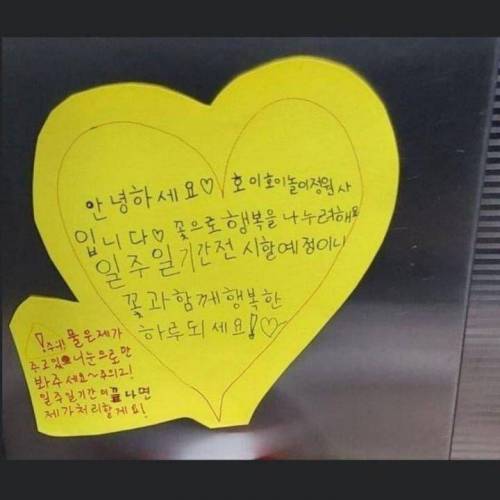 안녕하세요♡ 호이호이놀이정원사
입니다♡ 꽃으로행복을나누려해요
일주일기간전시할예정이니
꽃과함께행복한
하루되세요!♡
!주의! 물은제가
주고있으니눈으로만
봐주세요~주의2!
일주일기간이끝나면
제가처리할게요!